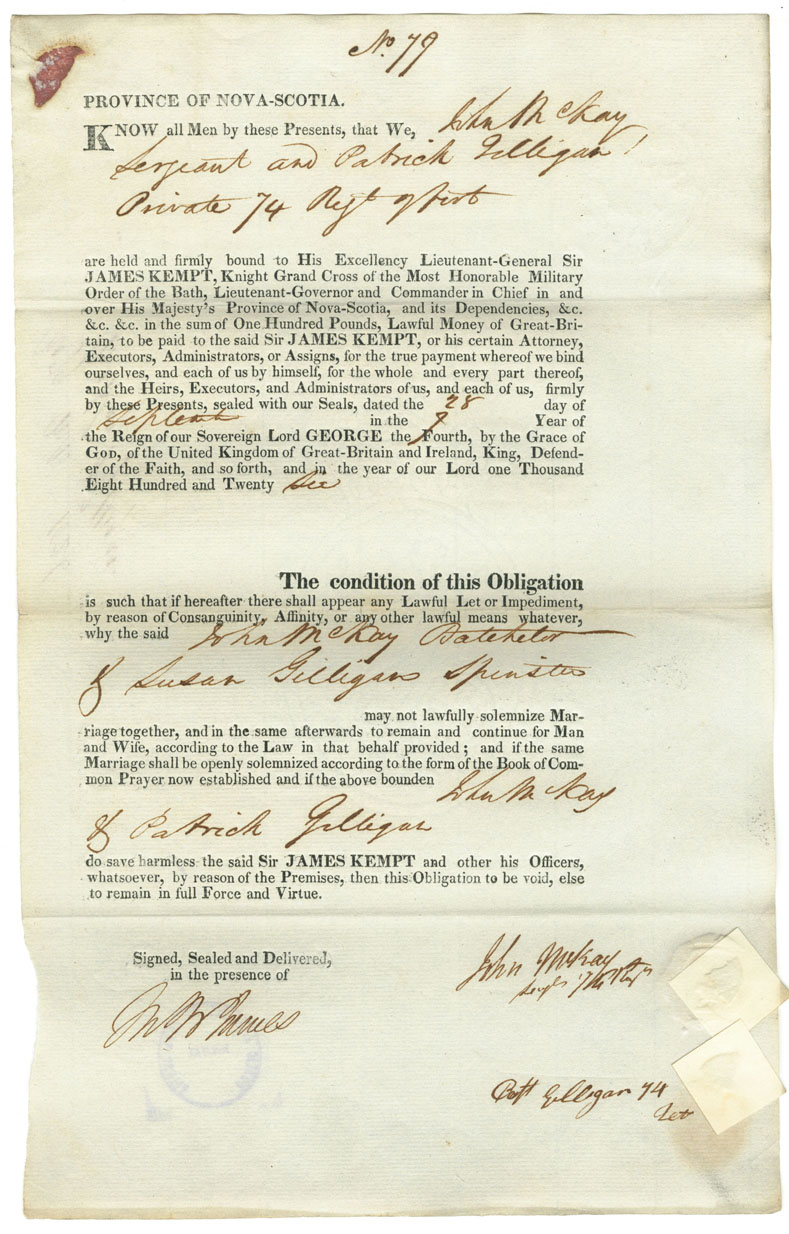 No. 79
PROVINCE OF NOVA-SCOTIA.
KNOW all Men by these Presents, that We, John McKay
Sergeant and Patrick Gilligan
Private 74 Regt of foot
are held and firmly bound to His Excellency Lieutenant-General Sir
JAMES KEMPT, Knight Grand Cross of the Most Honorable Military
Order of the Bath, Lieutenant-Governor and Commander in Chief in and
over His Majesty's Province of Nova-Scotia, and its Dependencies, &c.
&c. &c. in the sum of One Hundred Pounds, Lawful Money of Great-Bri-
tain, to be paid to the said Sir JAMES KEMPT, or his certain Attorney,
Executors, Administrators, or Assigns, for the true payment whereof we bind
ourselves, and each of us by himself, for the whole and every part thereof,
and the Heirs, Executors, and Administrators of us, and each of us, firmly
by these Presents, sealed with our Seals, dated the 28 day of
in the 7 Year of
the Reign of our Sovereign Lord GEORGE the Fourth, by the Grace of
GOD, of the United Kingdom of Great-Britain and Ireland, King, Defend-
er of the Faith, and so forth, and in the year of our Lord one Thousand
Eight Hundred and Twenty
The condition of this Obligation
is such that if hereafter there shall appear any Lawful Let or Impediment,
by reason of Consanguinity, Affinity, or any other lawful means whatever,
why the said John McKay Batchelor
& Susan Gilligan Spinster
may not lawfully solemnize Mar-
riage together, and in the same afterwards to remain and continue for Man
and Wife, according to the Law in that behalf provided; and if the same
Marriage shall be openly solemnized according to the form of the Book of Com-
mon Prayer now established and if the above bounden John McKay
& Patrick Gilligan
do save harmless the said Sir JAMES KEMPT and other his Officers,
whatsoever, by reason of the Premises, then this Obligation to be void, else
to remain in full Force and Virtue.
Signed, Sealed and Delivered,
in the presence of
John McKay
74
Gilligan 74